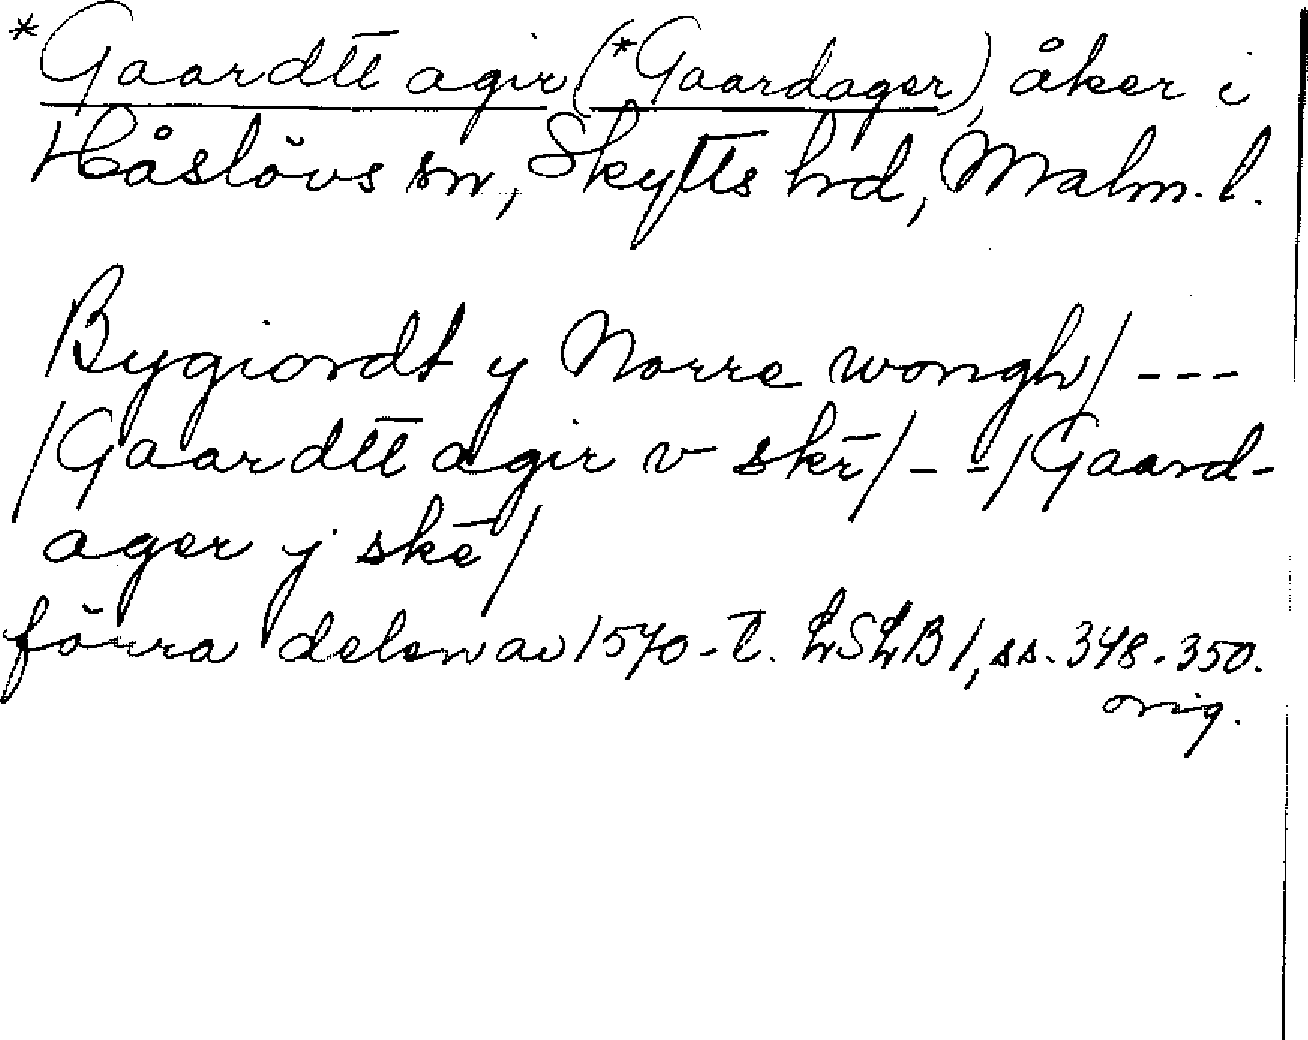 *Gaardtt agir (*Gaardager), åker i
Håslövs sn, Skytts hrd, Malm. l.
Bygiordt y Norre wongh/ ---
/Gaardtt agir v skr̄/ - - /Gaard-
ager j skē/
förra delen av 1570-t. LSLB 1, ss. 348-350.
orig.